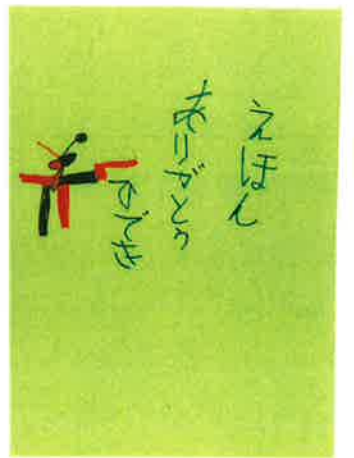 えほん
ありがとう
ひでき